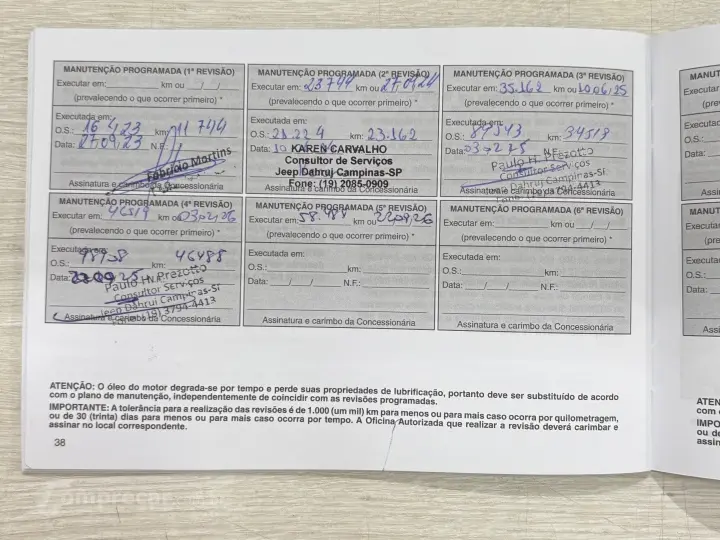 MANUTENÇÃO PROGRAMADA (1ª REVISÃO)
Executar em: km ou / /
(prevalecendo o que ocorrer primeiro) *
Executada em:
O.S.: 16 4 23 km: 11 744
Data: 27.09.23 N.F.:
Fabricio Martins
Assinatura e carimbo da Concessionária
MANUTENÇÃO PROGRAMADA (2ª REVISÃO)
Executar em: 23744 km ou 27.09.24
(prevalecendo o que ocorrer primeiro) *
Executada em:
O.S.: km: 23.162
Data: 10
KAREN CARVALHO
Consultor de Serviços
Jeep Dahruj Campinas-SP
Fone: (19) 2085-0909
Assinatura e carimbo da Concessionária
MANUTENÇÃO PROGRAMADA (3ª REVISÃO)
Executar em: 35.162 km ou
(prevalecendo o que ocorrer primeiro) *
Executada em:
O.S.: km: 34519
Data: N.F.:
Paulo H. Prezotto
Consultor Serviços
Jeep Dahruj Campinas-SP
Fone: (19) 3794-4413
Assinatura e carimbo da Concessionária
MANUTENÇÃO PROGRAMADA (4ª REVISÃO)
Executar em: 46519 km ou 03.02.26
(prevalecendo o que ocorrer primeiro) *
Executada em:
O.S.: km: 46488
Data:
Paulo H. Prezotto
Consultor Serviços
Jeep Dahruj Campinas-SP
Fone: (19) 3794-4413
Assinatura e carimbo da Concessionária
MANUTENÇÃO PROGRAMADA (5ª REVISÃO)
Executar em: 58.488 km ou
(prevalecendo o que ocorrer primeiro) *
Executada em:
O.S.: km:
Data: / / N.F.:
Assinatura e carimbo da Concessionária
MANUTENÇÃO PROGRAMADA (6ª REVISÃO)
Executar em: km ou / /
(prevalecendo o que ocorrer primeiro) *
Executada em:
O.S.: km:
Data: / / N.F.:
Assinatura e carimbo da Concessionária
ATENÇÃO: O óleo do motor degrada-se por tempo e perde suas propriedades de lubrificação, portanto deve ser substituído de acordo
com o plano de manutenção, independentemente de coincidir com as revisões programadas.
IMPORTANTE: A tolerância para a realização das revisões é de 1.000 (um mil) km para menos ou para mais caso ocorra por quilometragem,
ou de 30 (trinta) dias para menos ou para mais caso ocorra por tempo. A Oficina Autorizada que realizar a revisão deverá carimbar e
assinar no local correspondente.
38